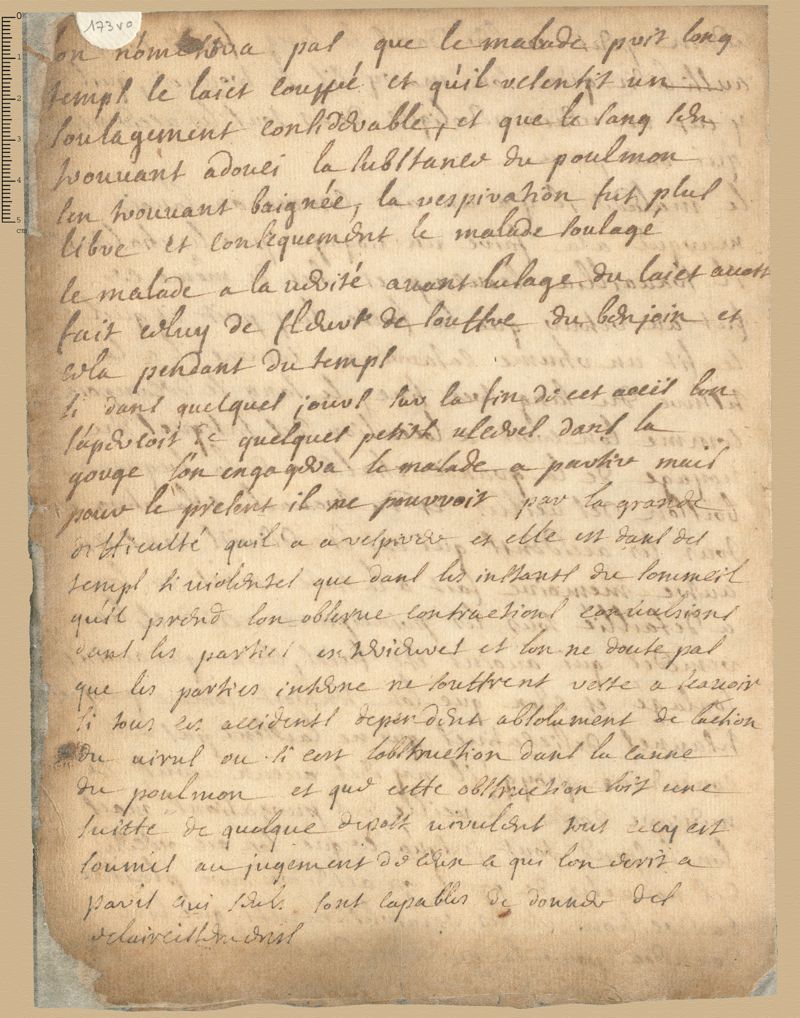 173 vo
lon n'omettra pas que le malade prit long
temps le laict couppé et qu'il resentit un
soulagement considerable, et que le sang s'en
trouuant adouci la substance du poulmon
s'en trouuant baignée, la respiration fut plus
libre et consequement le malade soulagé
le malade a la uerité auant l'usage du laict auoit
fait celuy de fleurs de souffre du benjoin et
cela pendant du temps
si dans quelques jours sur la fin de cet accés lon
s'aperçoit de quelques petits ulceres dans la
gorge l'on engagera le malade a partir mais
pour le present il ne pourroit par la grande
difficulté quil a a respirer et elle est dans des
temps si uiolentes que dans les instants du sommeil
qu'il prend lon obserue contractions conuulsions
dans les parties exterieures et lon ne doute pas
que les parties interne ne souffrent reste a scauoir
si tous ces accidents dependent absolument de laction
du uirus ou si cest lobstruction dans la canne
du poulmon et que cette obstruction soit une
suitte de quelque depost uirulent tout cecy est
soumis au jugement de ceux a qui lon ecrit a
paris qui seuls sont capables de donner des
eclaircissements